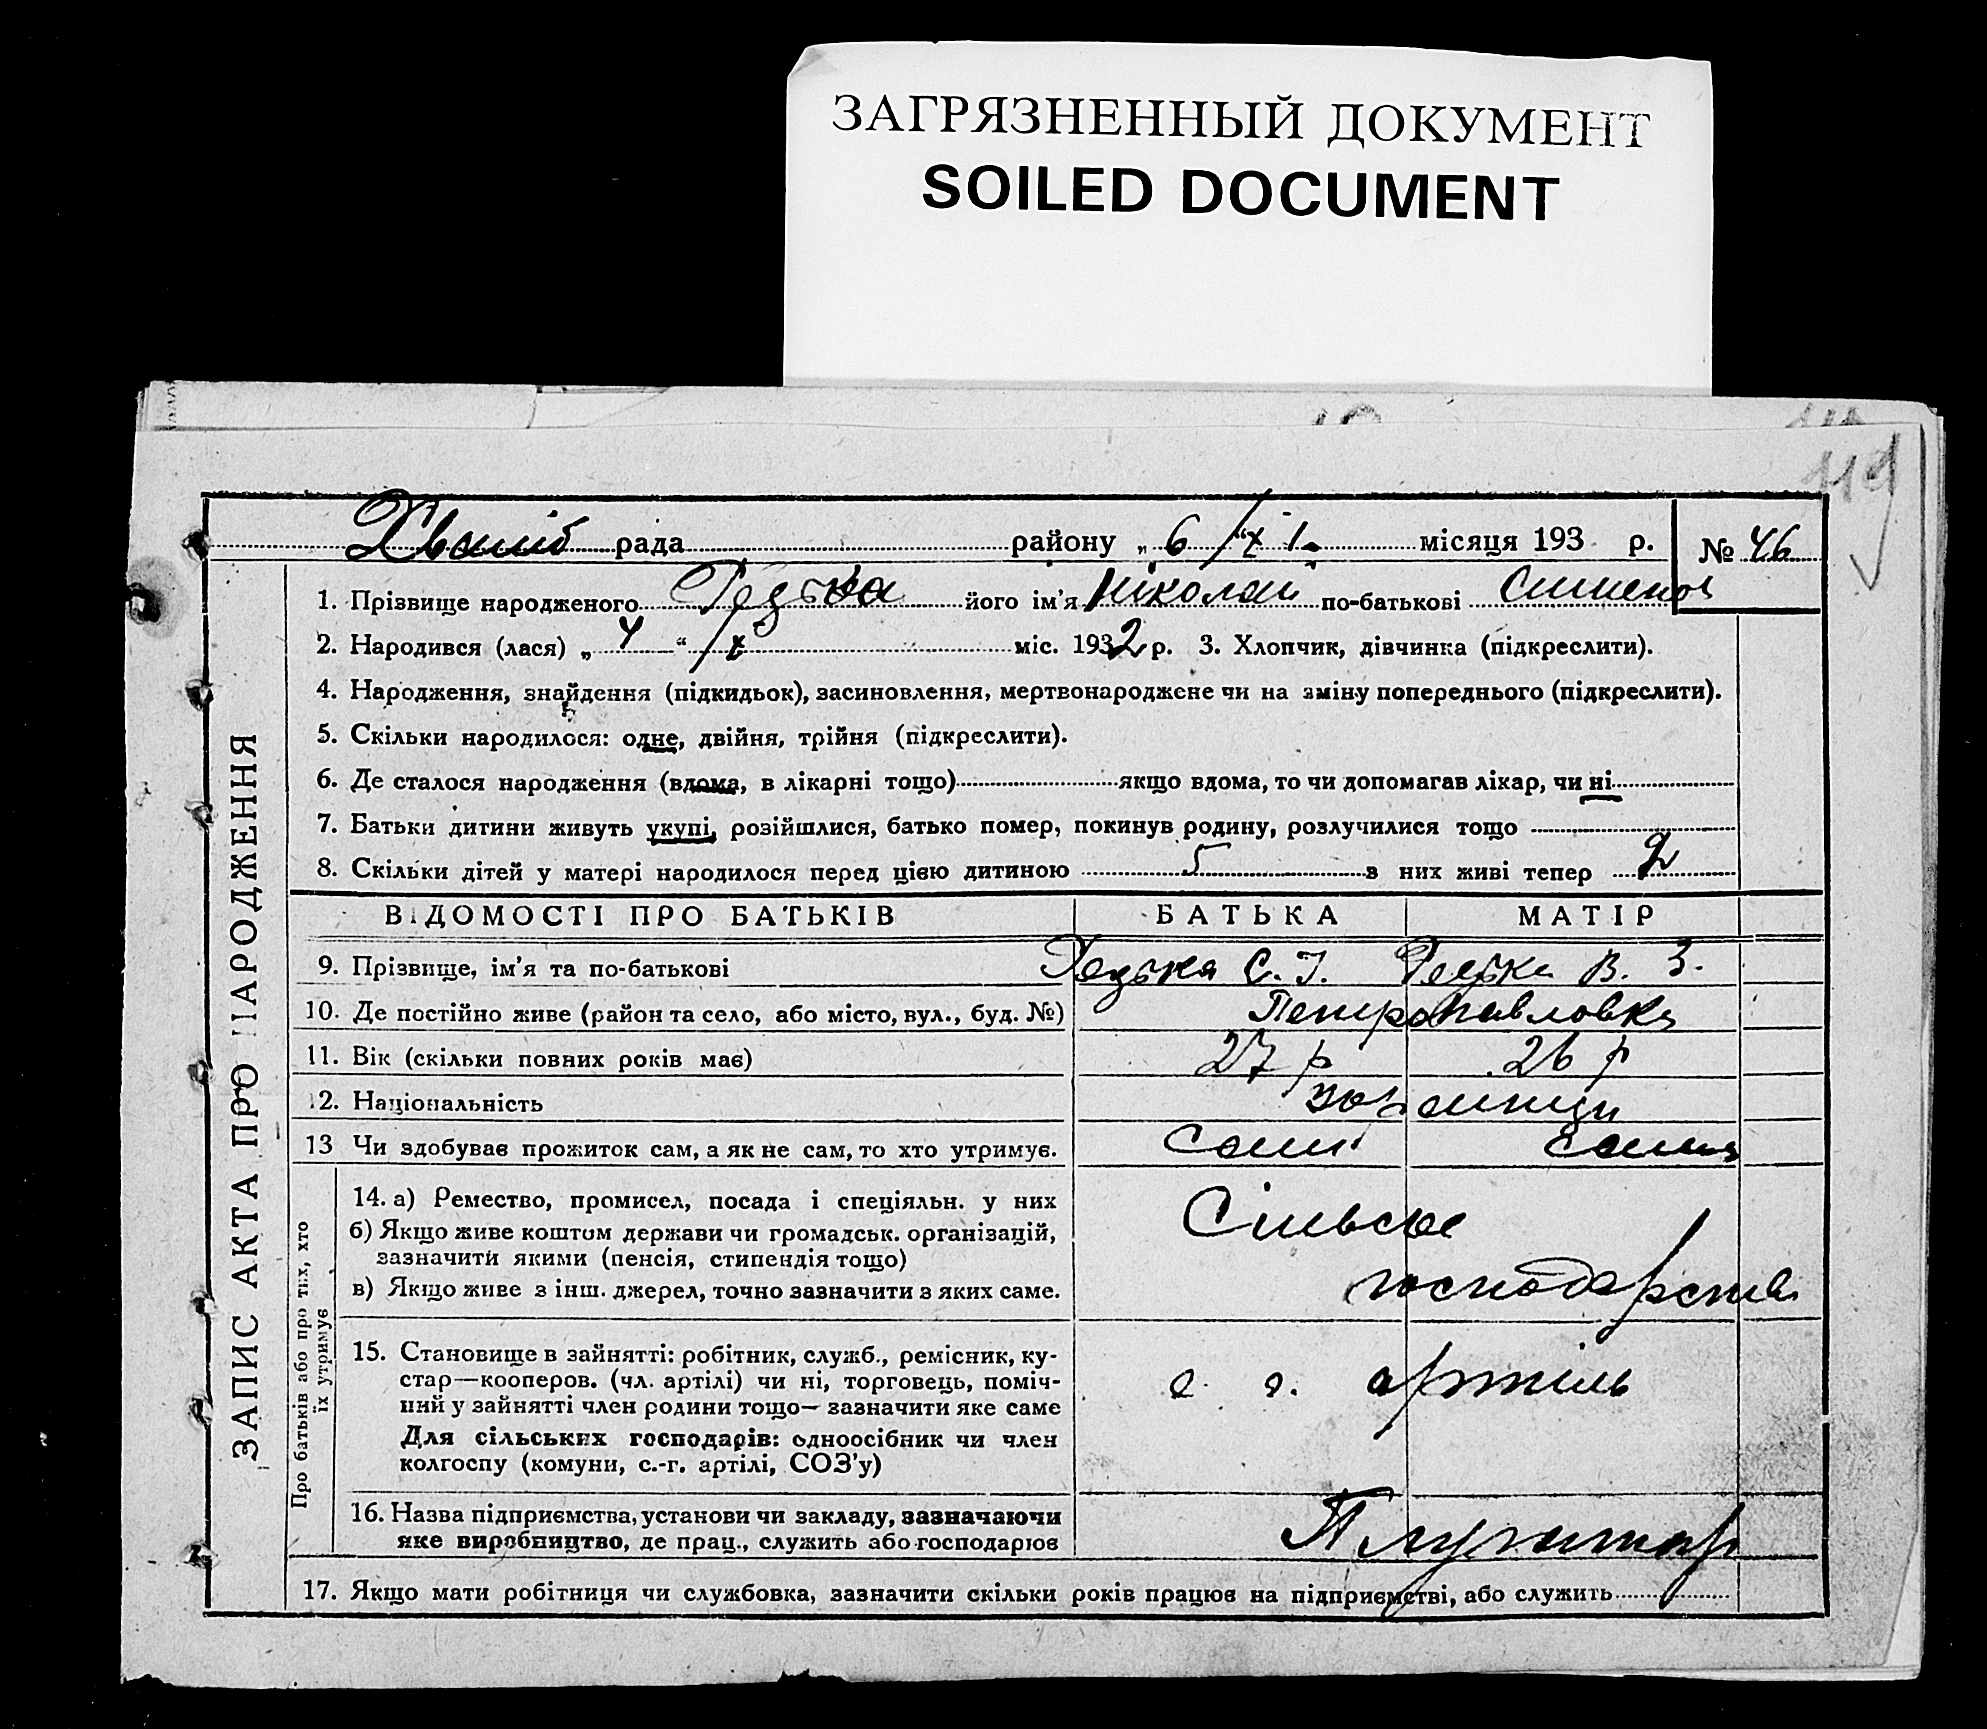 ЗАГРЯЗНЕННЫЙ ДОКУМЕНТ
SOILED DOCUMENT
119
рада району „ 6 " / X 1. місяця 193 р. № 46
ЗАПИС АКТА ПРО НАРОДЖЕННЯ
1. Прізвище народженого його ім'я Ніколай по-батькові
2. Народився (лася) „ 4 “ / X міс. 1932 р. 3. Хлопчик, дівчинка (підкреслити).
4. Народження, знайдення (підкидьок), засиновлення, мертвонароджене чи на зміну попереднього (підкреслити).
5. Скільки народилося: одне, двійня, трійня (підкреслити).
6. Де сталося народження (вдома, в лікарні тощо) якщо вдома, то чи допомагав лікар, чи ні
7. Батьки дитини живуть укупі, розійшлися, батько помер, покинув родину, розлучилися тощо
8. Скільки дітей у матері народилося перед цією дитиною 5 з них живі тепер 2
ВІДОМОСТІ ПРО БАТЬКІВ БАТЬКА МАТІР
9. Прізвище, ім'я та по-батькові С. І. В. З.
10. Де постійно живе (район та село, або місто, вул., буд. №) Петропавловка
11. Вік (скільки повних років має) 27 р 26 р
12. Національність
13 Чи здобуває прожиток сам, а як не сам, то хто утримує. сам сама
Про батьків або про тих, хто їх утримує
14. а) Ремество, промисел, посада і спеціяльн. у них
б) Якщо живе коштом держави чи громадськ. організацій,
зазначити якими (пенсія, стипендія тощо)
в) Якщо живе з інш. джерел, точно зазначити з яких саме.
Сільське
господарство
15. Становище в зайнятті: робітник, служб., ремісник, ку-
стар—кооперов. (чл. артілі) чи ні, торговець, поміч-
ний у зайнятті член родини тощо— зазначити яке саме
Для сільських господарів: одноосібник чи член
колгоспу (комуни, с.-г. артілі, СОЗ'у)
с. г. артіль
16. Назва підприємства, установи чи закладу, зазначаючи
яке виробництво, де прац., служить або господарює
Плугатар
17. Якщо мати робітниця чи службовка, зазначити скільки років працює на підприємстві, або служить